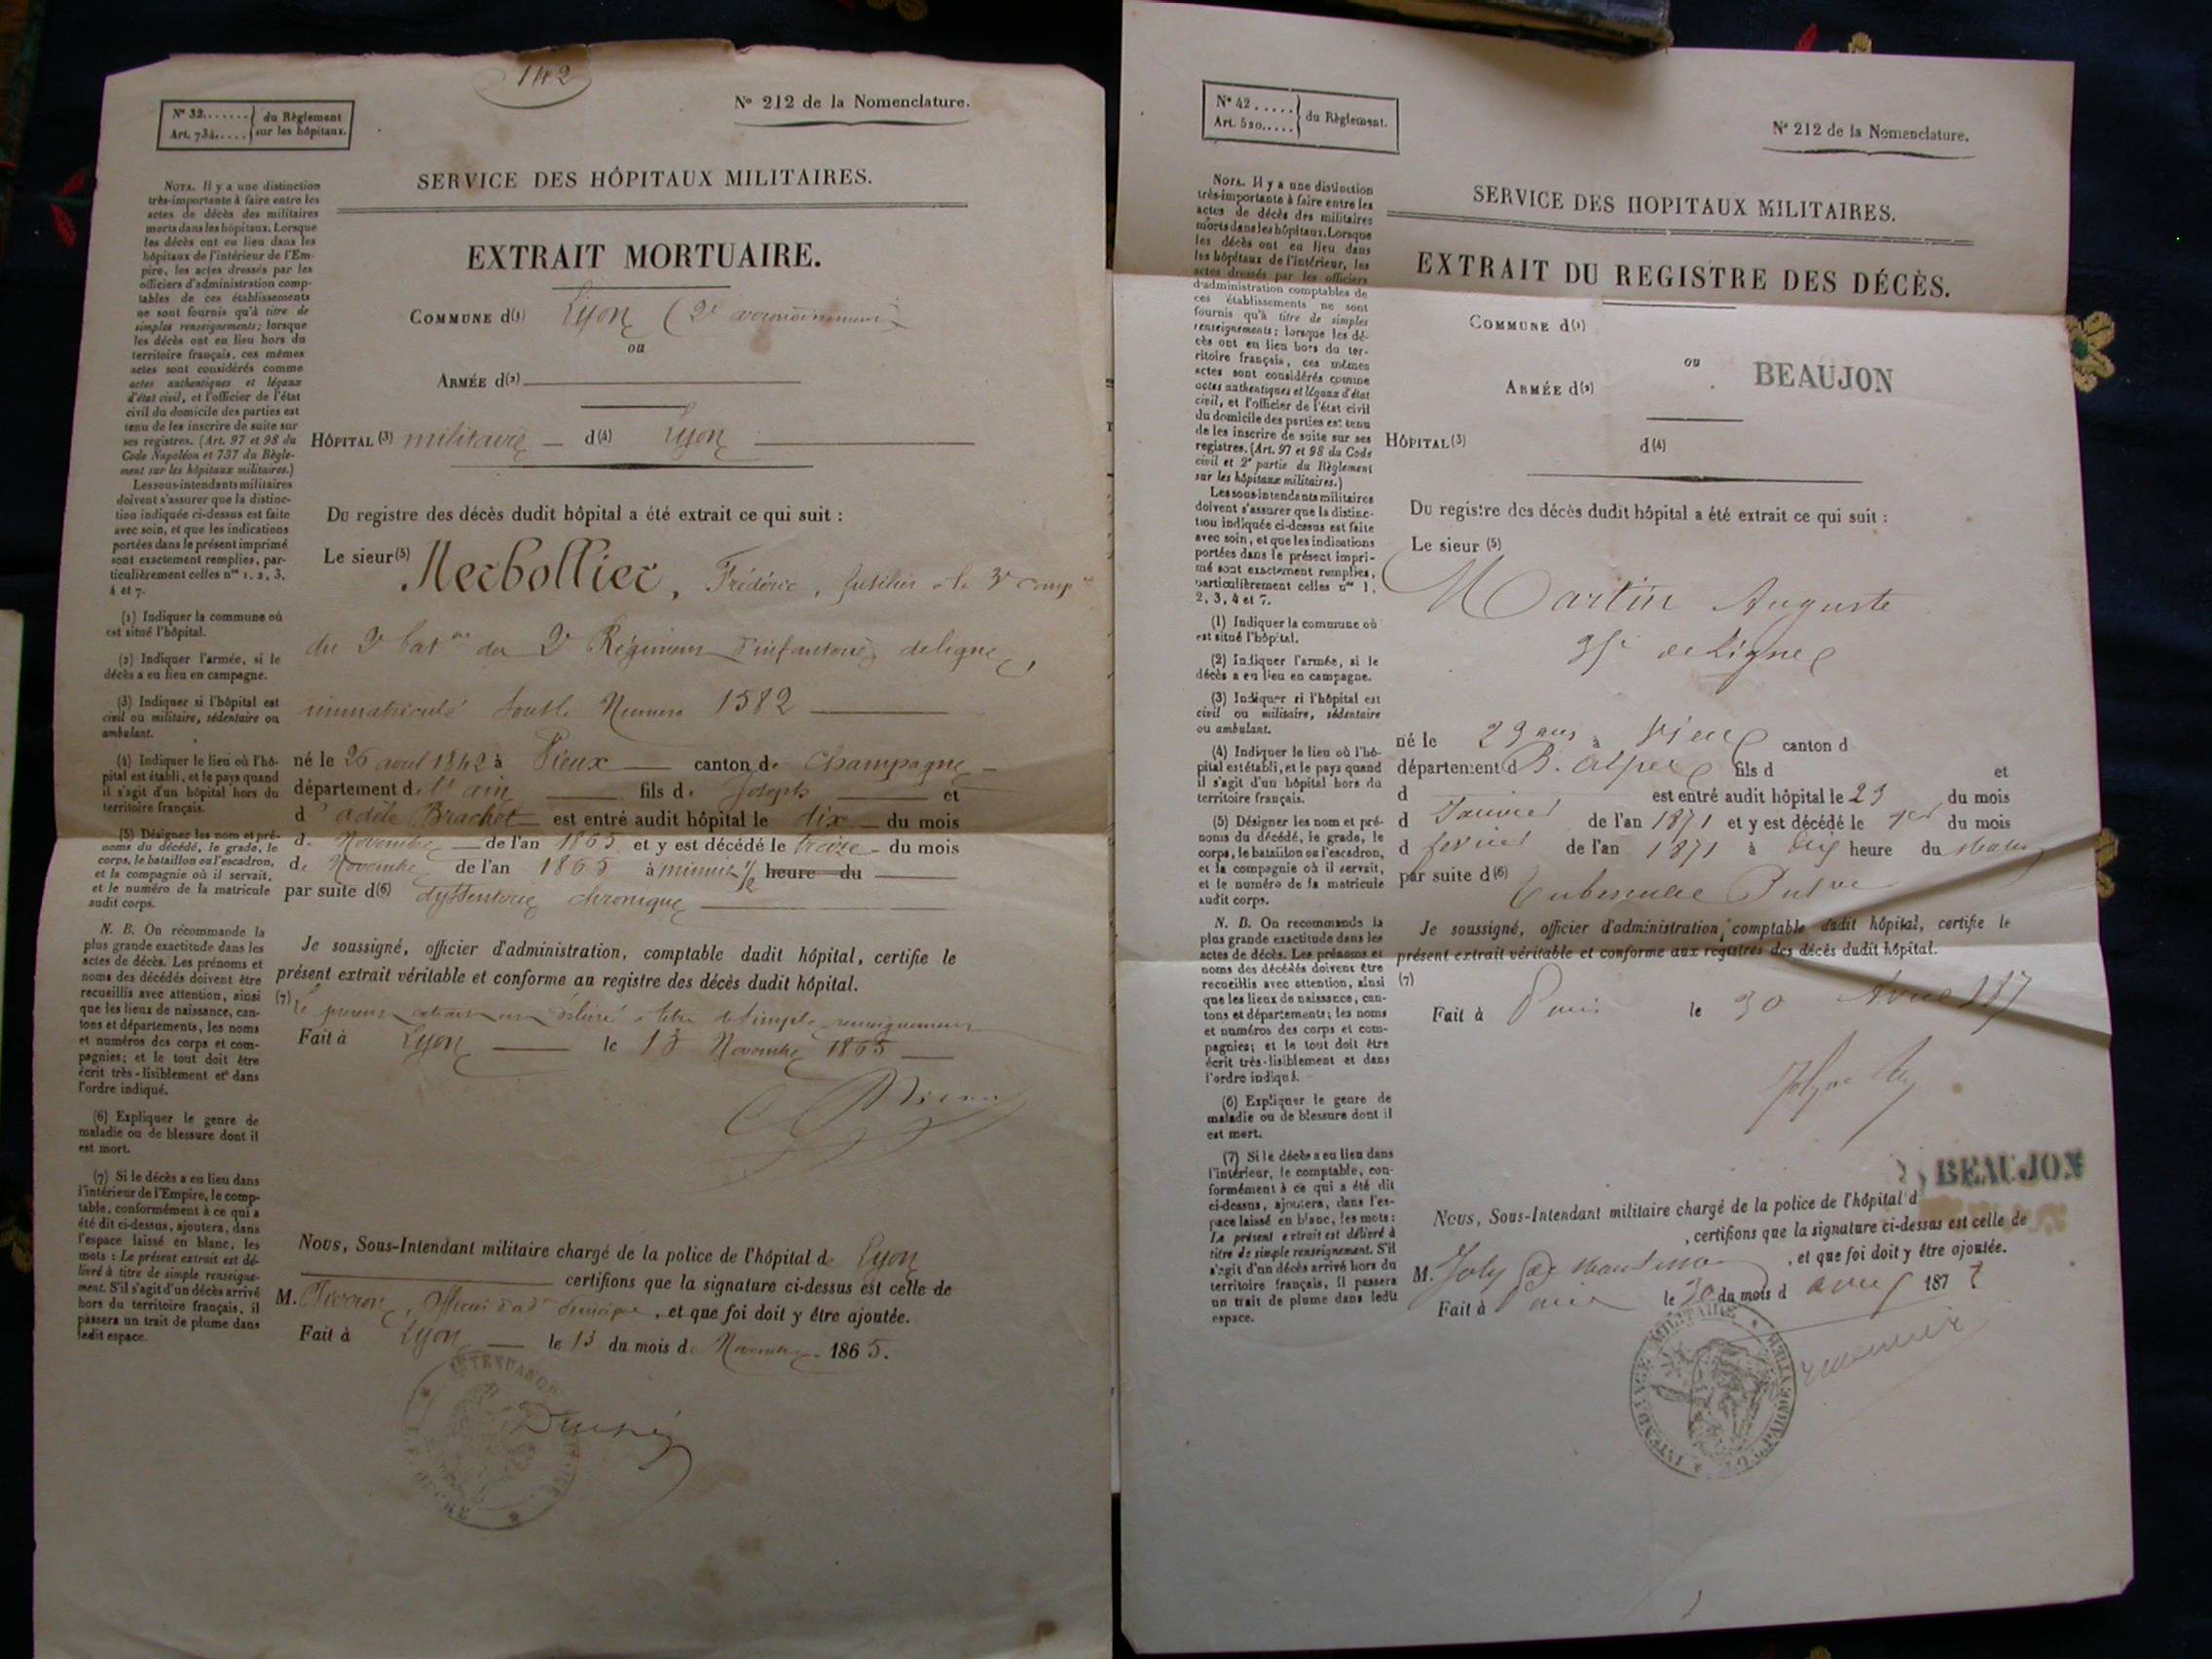 142
N° 32....... du Règlement
Art. 734..... sur les hôpitaux.
N° 212 de la Nomenclature.
SERVICE DES HÔPITAUX MILITAIRES.
EXTRAIT MORTUAIRE.
COMMUNE d(1) Lyon (2e arrondissement)
ou
ARMÉE d(2)
HÔPITAL (3) militaire d(4) Lyon
Du registre des décès dudit hôpital a été extrait ce qui suit :
Le sieur(5) Merbollier, Frédéric, fusilier à la 3e compie
du 2e baton du 2e Régiment d'infanterie de ligne,
immatriculé sous le Numero 1582
né le 26 avril 1842 à Vieux canton de Champagne
département de l'ain fils de Joseph et
d'adèle Brachet est entré audit hôpital le dix du mois
de Novembre de l'an 1865 et y est décédé le treize du mois
de Novembre de l'an 1865 à minuit 1/2 heure du
par suite d(6) dyssenterie chronique
Je soussigné, officier d'administration, comptable dudit hôpital, certifie le
présent extrait véritable et conforme au registre des décès dudit hôpital.
(7) Le présent extrait est délivré à titre de simple renseignement
Fait à Lyon le 13 Novembre 1865
Nous, Sous-Intendant militaire chargé de la police de l'hôpital de Lyon
certifions que la signature ci-dessus est celle de
M. , et que foi doit y être ajoutée.
Fait à Lyon le 13 du mois de Novembre 1865.
INTENDANCE
NOTA. Il y a une distinction
très-importante à faire entre les
actes de décès des militaires
morts dans les hôpitaux. Lorsque
les décès ont eu lieu dans les
hôpitaux de l'intérieur de l'Em-
pire, les actes dressés par les
officiers d'administration comp-
tables de ces établissements
ne sont fournis qu'à titre de
simples renseignements; lorsque
les décès ont eu lieu hors du
territoire français, ces mêmes
actes sont considérés comme
actes authentiques et légaux
d'état civil, et l'officier de l'état
civil du domicile des parties est
tenu de les inscrire de suite sur
ses registres. (Art. 97 et 98 du
Code Napoléon et 737 du Règle-
ment sur les hôpitaux militaires.)
Les sous-intendants militaires
doivent s'assurer que la distinc-
tion indiquée ci-dessus est faite
avec soin, et que les indications
portées dans le présent imprimé
sont exactement remplies, par-
ticulièrement celles nos 1, 2, 3,
4 et 7.
(1) Indiquer la commune où
est situé l'hôpital.
(2) Indiquer l'armée, si le
décès a eu lieu en campagne.
(3) Indiquer si l'hôpital est
civil ou militaire, sédentaire ou
ambulant.
(4) Indiquer le lieu où l'hô-
pital est établi, et le pays quand
il s'agit d'un hôpital hors du
territoire français.
(5) Désigner les nom et pré-
noms du décédé, le grade, le
corps, le bataillon ou l'escadron,
et la compagnie où il servait,
et le numéro de la matricule
audit corps.
N. B. On recommande la
plus grande exactitude dans les
actes de décès. Les prénoms et
noms des décédés doivent être
recueillis avec attention, ainsi
que les lieux de naissance, can-
tons et départements, les noms
et numéros des corps et com-
pagnies; et le tout doit être
écrit très-lisiblement et dans
l'ordre indiqué.
(6) Expliquer le genre de
maladie ou de blessure dont il
est mort.
(7) Si le décès a eu lieu dans
l'intérieur de l'Empire, le comp-
table, conformément à ce qui a
été dit ci-dessus, ajoutera, dans
l'espace laissé en blanc, les
mots : Le présent extrait est dé-
livré à titre de simple renseigne-
ment. S'il s'agit d'un décès arrivé
hors du territoire français, il
passera un trait de plume dans
ledit espace.
N° 42..... du Règlement.
Art. 520.....
N° 212 de la Nomenclature.
SERVICE DES HOPITAUX MILITAIRES.
EXTRAIT DU REGISTRE DES DÉCÈS.
COMMUNE d(1)
ou
BEAUJON
ARMÉE d(2)
HÔPITAL(3) d(4)
Du registre des décès dudit hôpital a été extrait ce qui suit :
Le sieur (5)
Martin Auguste
35e de Ligne
né le 29 ans à Vieux canton d
département d B. Alpes fils d et
d est entré audit hôpital le 23 du mois
d Janvier de l'an 1871 et y est décédé le 1er du mois
d février de l'an 1871 à heure du matin
par suite d(6)
Je soussigné, officier d'administration, comptable dudit hôpital, certifie le
présent extrait véritable et conforme aux registres des décès dudit hôpital.
(7)
Fait à Paris le 30 Avril 187
BEAUJON
Nous, Sous-Intendant militaire chargé de la police de l'hôpital d
, certifions que la signature ci-dessus est celle de
M. Joly de , et que foi doit y être ajoutée.
Fait à Paris le 30 du mois d avril 187
INTENDANCE MILITAIRE
NOTA. Il y a une distinction
très-importante à faire entre les
actes de décès des militaires
morts dans les hôpitaux. Lorsque
les décès ont eu lieu dans
les hôpitaux de l'intérieur, les
actes dressés par les officiers
d'administration comptables de
ces établissements ne sont
fournis qu'à titre de simples
renseignements; lorsque les dé-
cès ont eu lieu hors du ter-
ritoire français, ces mêmes
actes sont considérés comme
actes authentiques et légaux d'état
civil, et l'officier de l'état civil
du domicile des parties est tenu
de les inscrire de suite sur ses
registres. (Art. 97 et 98 du Code
civil et 2e partie du Règlement
sur les hôpitaux militaires.)
Les sous-intendants militaires
doivent s'assurer que la distinc-
tion indiquée ci-dessus est faite
avec soin, et que les indications
portées dans le présent impri-
mé sont exactement remplies,
particulièrement celles nos 1,
2, 3, 4 et 7.
(1) Indiquer la commune où
est situé l'hôpital.
(2) Indiquer l'armée, si le
décès a eu lieu en campagne.
(3) Indiquer si l'hôpital est
civil ou militaire, sédentaire
ou ambulant.
(4) Indiquer le lieu où l'hô-
pital est établi, et le pays quand
il s'agit d'un hôpital hors du
territoire français.
(5) Désigner les nom et pré-
noms du décédé, le grade, le
corps, le bataillon ou l'escadron,
et la compagnie où il servait,
et le numéro de la matricule
audit corps.
N. B. On recommande la
plus grande exactitude dans les
actes de décès. Les prénoms et
noms des décédés doivent être
recueillis avec attention, ainsi
que les lieux de naissance, can-
tons et départements; les noms
et numéros des corps et com-
pagnies; et le tout doit être
écrit très-lisiblement et dans
l'ordre indiqué.
(6) Expliquer le genre de
maladie ou de blessure dont il
est mort.
(7) Si le décès a eu lieu dans
l'intérieur, le comptable, con-
formément à ce qui a été dit
ci-dessus, ajoutera, dans l'es-
pace laissé en blanc, les mots :
Le présent extrait est délivré à
titre de simple renseignement. S'il
s'agit d'un décès arrivé hors du
territoire français, il passera
un trait de plume dans ledit
espace.